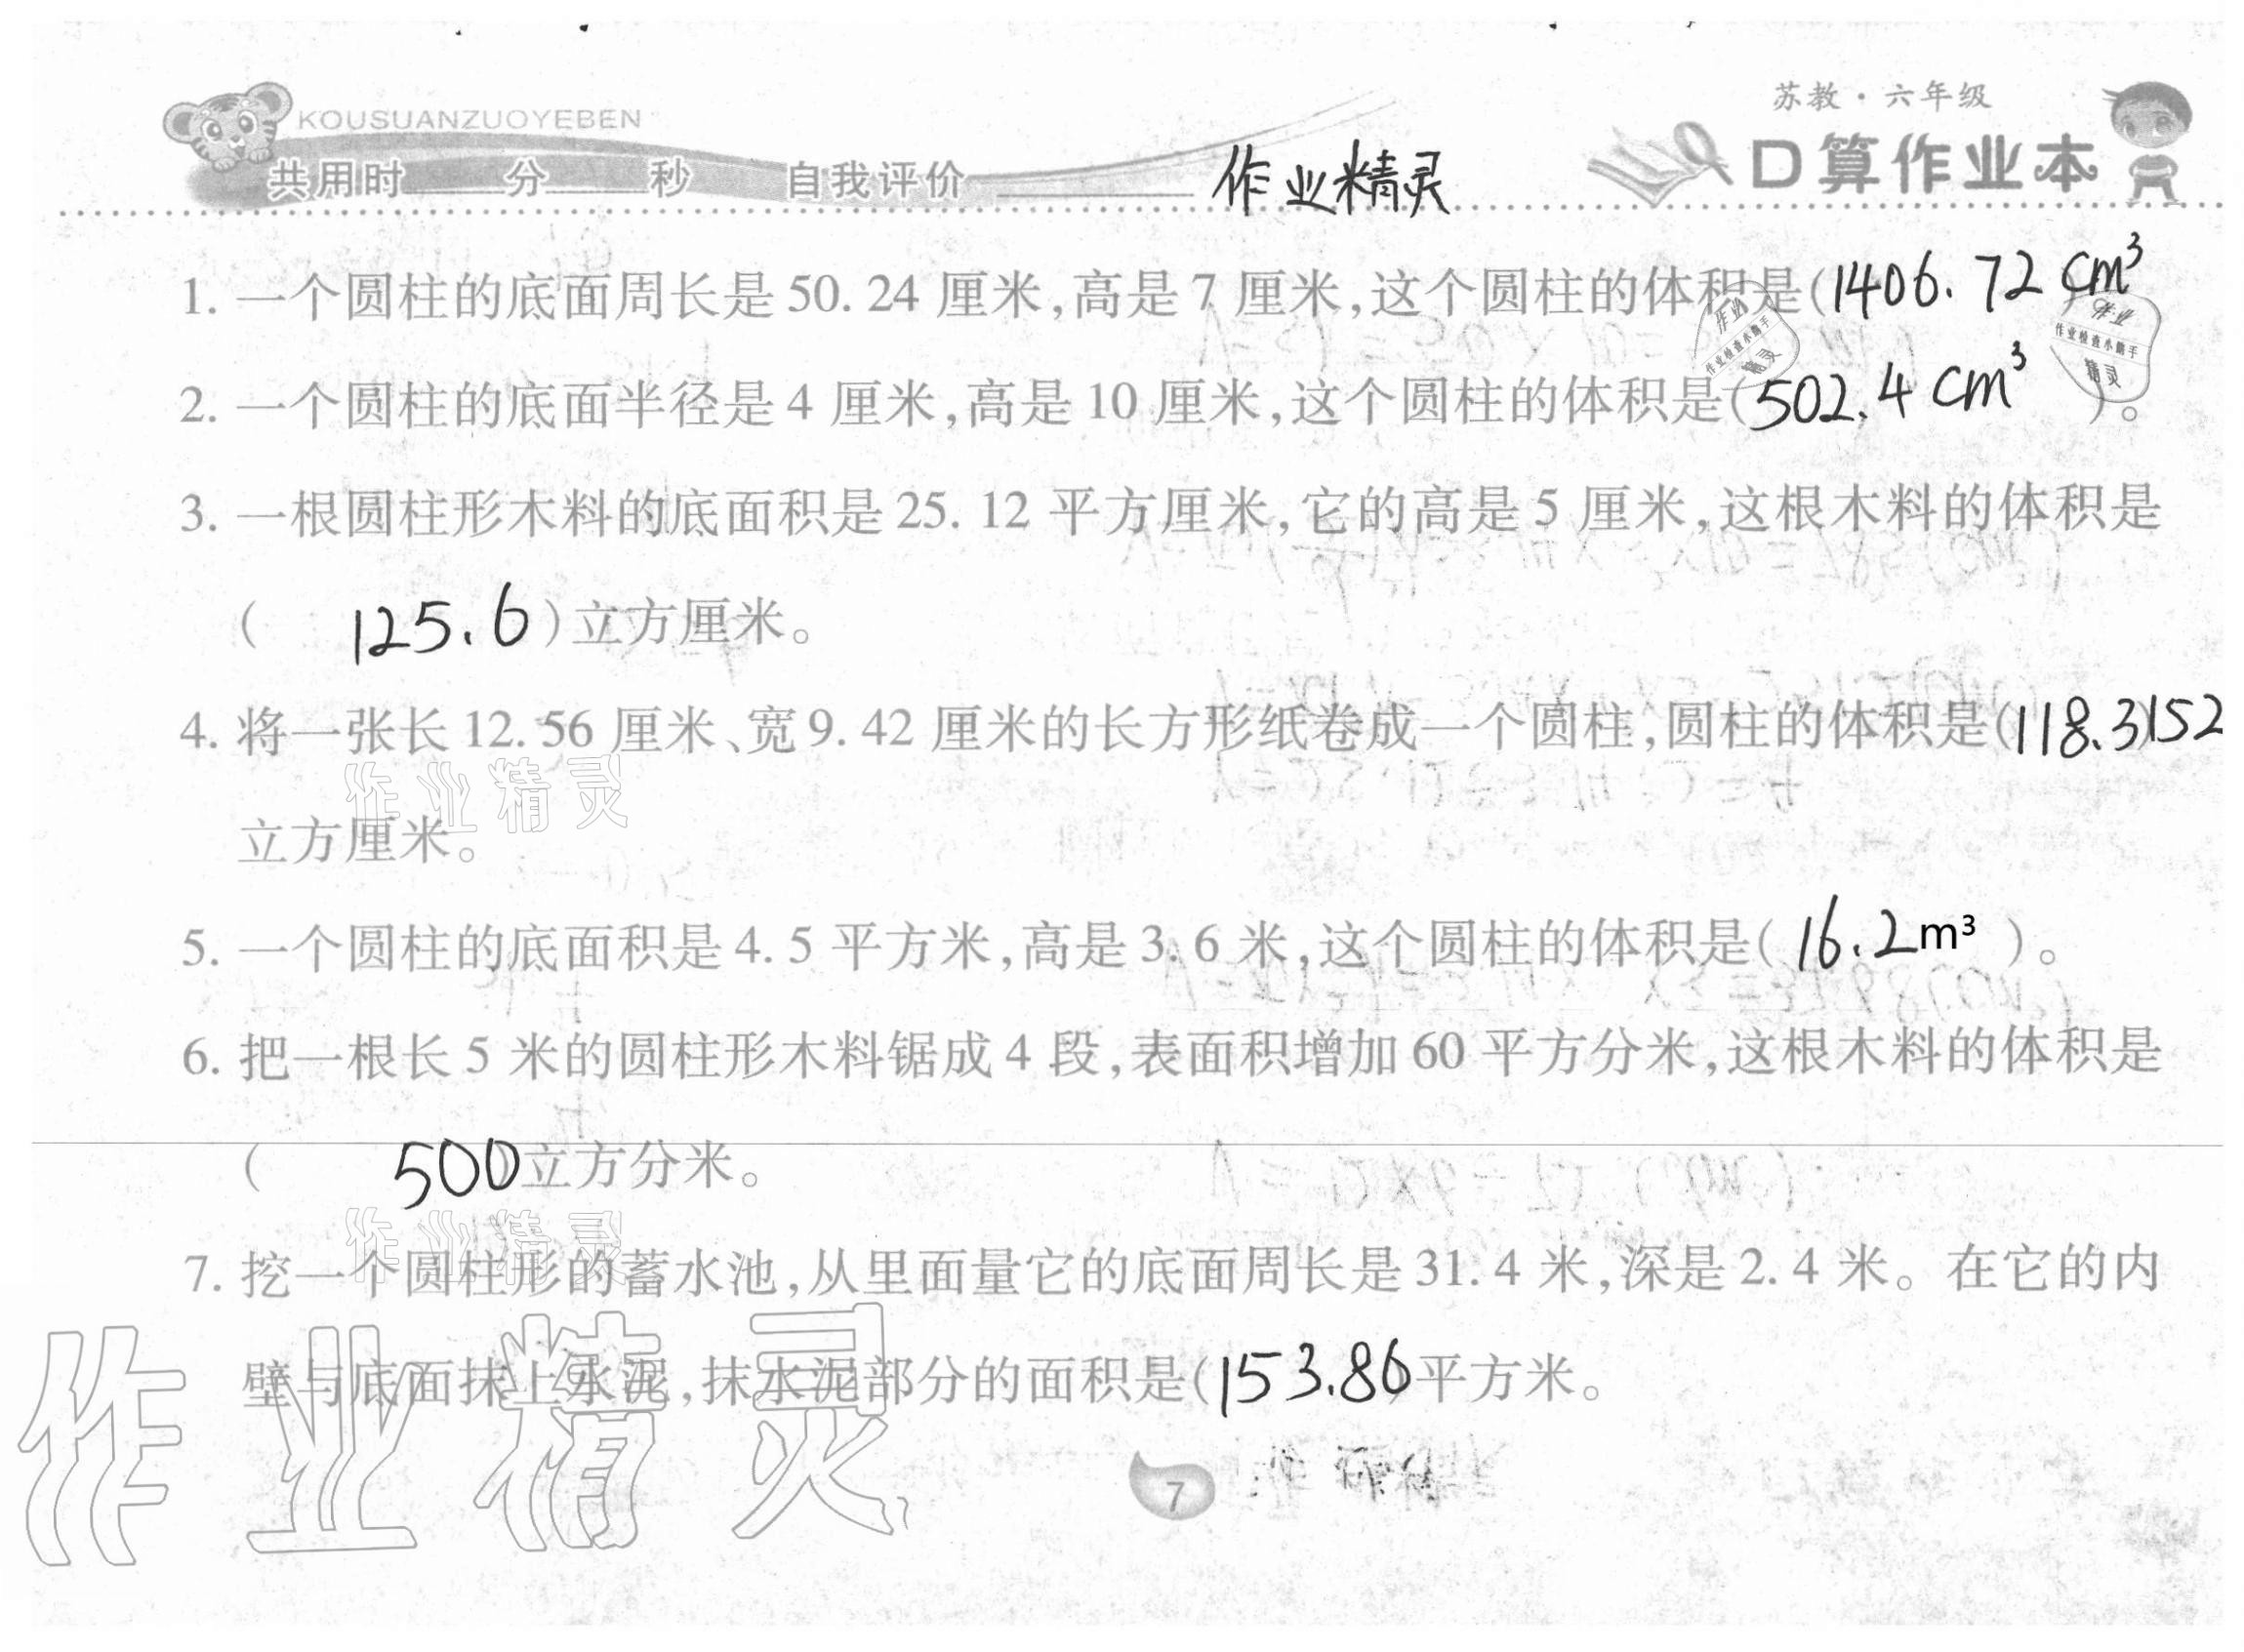 苏教·六年级
KOUSUANZUOYEBEN
共用时 分 秒 自我评价 作业精灵 口算作业本
1. 一个圆柱的底面周长是50.24厘米,高是7厘米,这个圆柱的体积是(1406.72 cm³
作业
作业检查小助手
精灵
作业
作业检查小助手
精灵
2. 一个圆柱的底面半径是4厘米,高是10厘米,这个圆柱的体积是(502.4 cm³)。
3. 一根圆柱形木料的底面积是25.12平方厘米,它的高是5厘米,这根木料的体积是
( 125.6)立方厘米。
4. 将一张长12.56厘米、宽9.42厘米的长方形纸卷成一个圆柱,圆柱的体积是(118.3152
作业精灵
立方厘米。
5. 一个圆柱的底面积是4.5平方米,高是3.6米,这个圆柱的体积是( 16.2m³ )。
6. 把一根长5米的圆柱形木料锯成4段,表面积增加60平方分米,这根木料的体积是
( 500立方分米。
作业精灵
7. 挖一个圆柱形的蓄水池,从里面量它的底面周长是31.4米,深是2.4米。在它的内
壁与底面抹上水泥,抹水泥部分的面积是(153.86平方米。
作业精灵
7